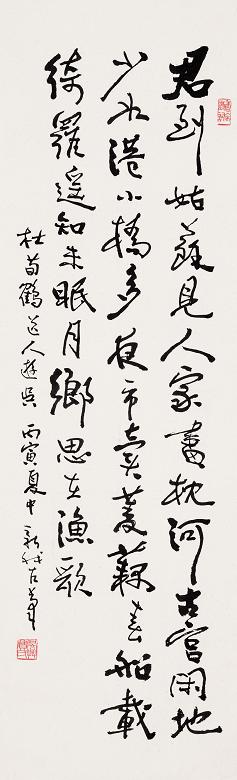 君到姑蘇見人家盡枕河古宮閑地
少水港小橋多夜市賣菱藕春船載
綺羅遙知未眠月鄉思在漁歌
杜荀鶴送人遊吳 丙寅夏中 新我左筆